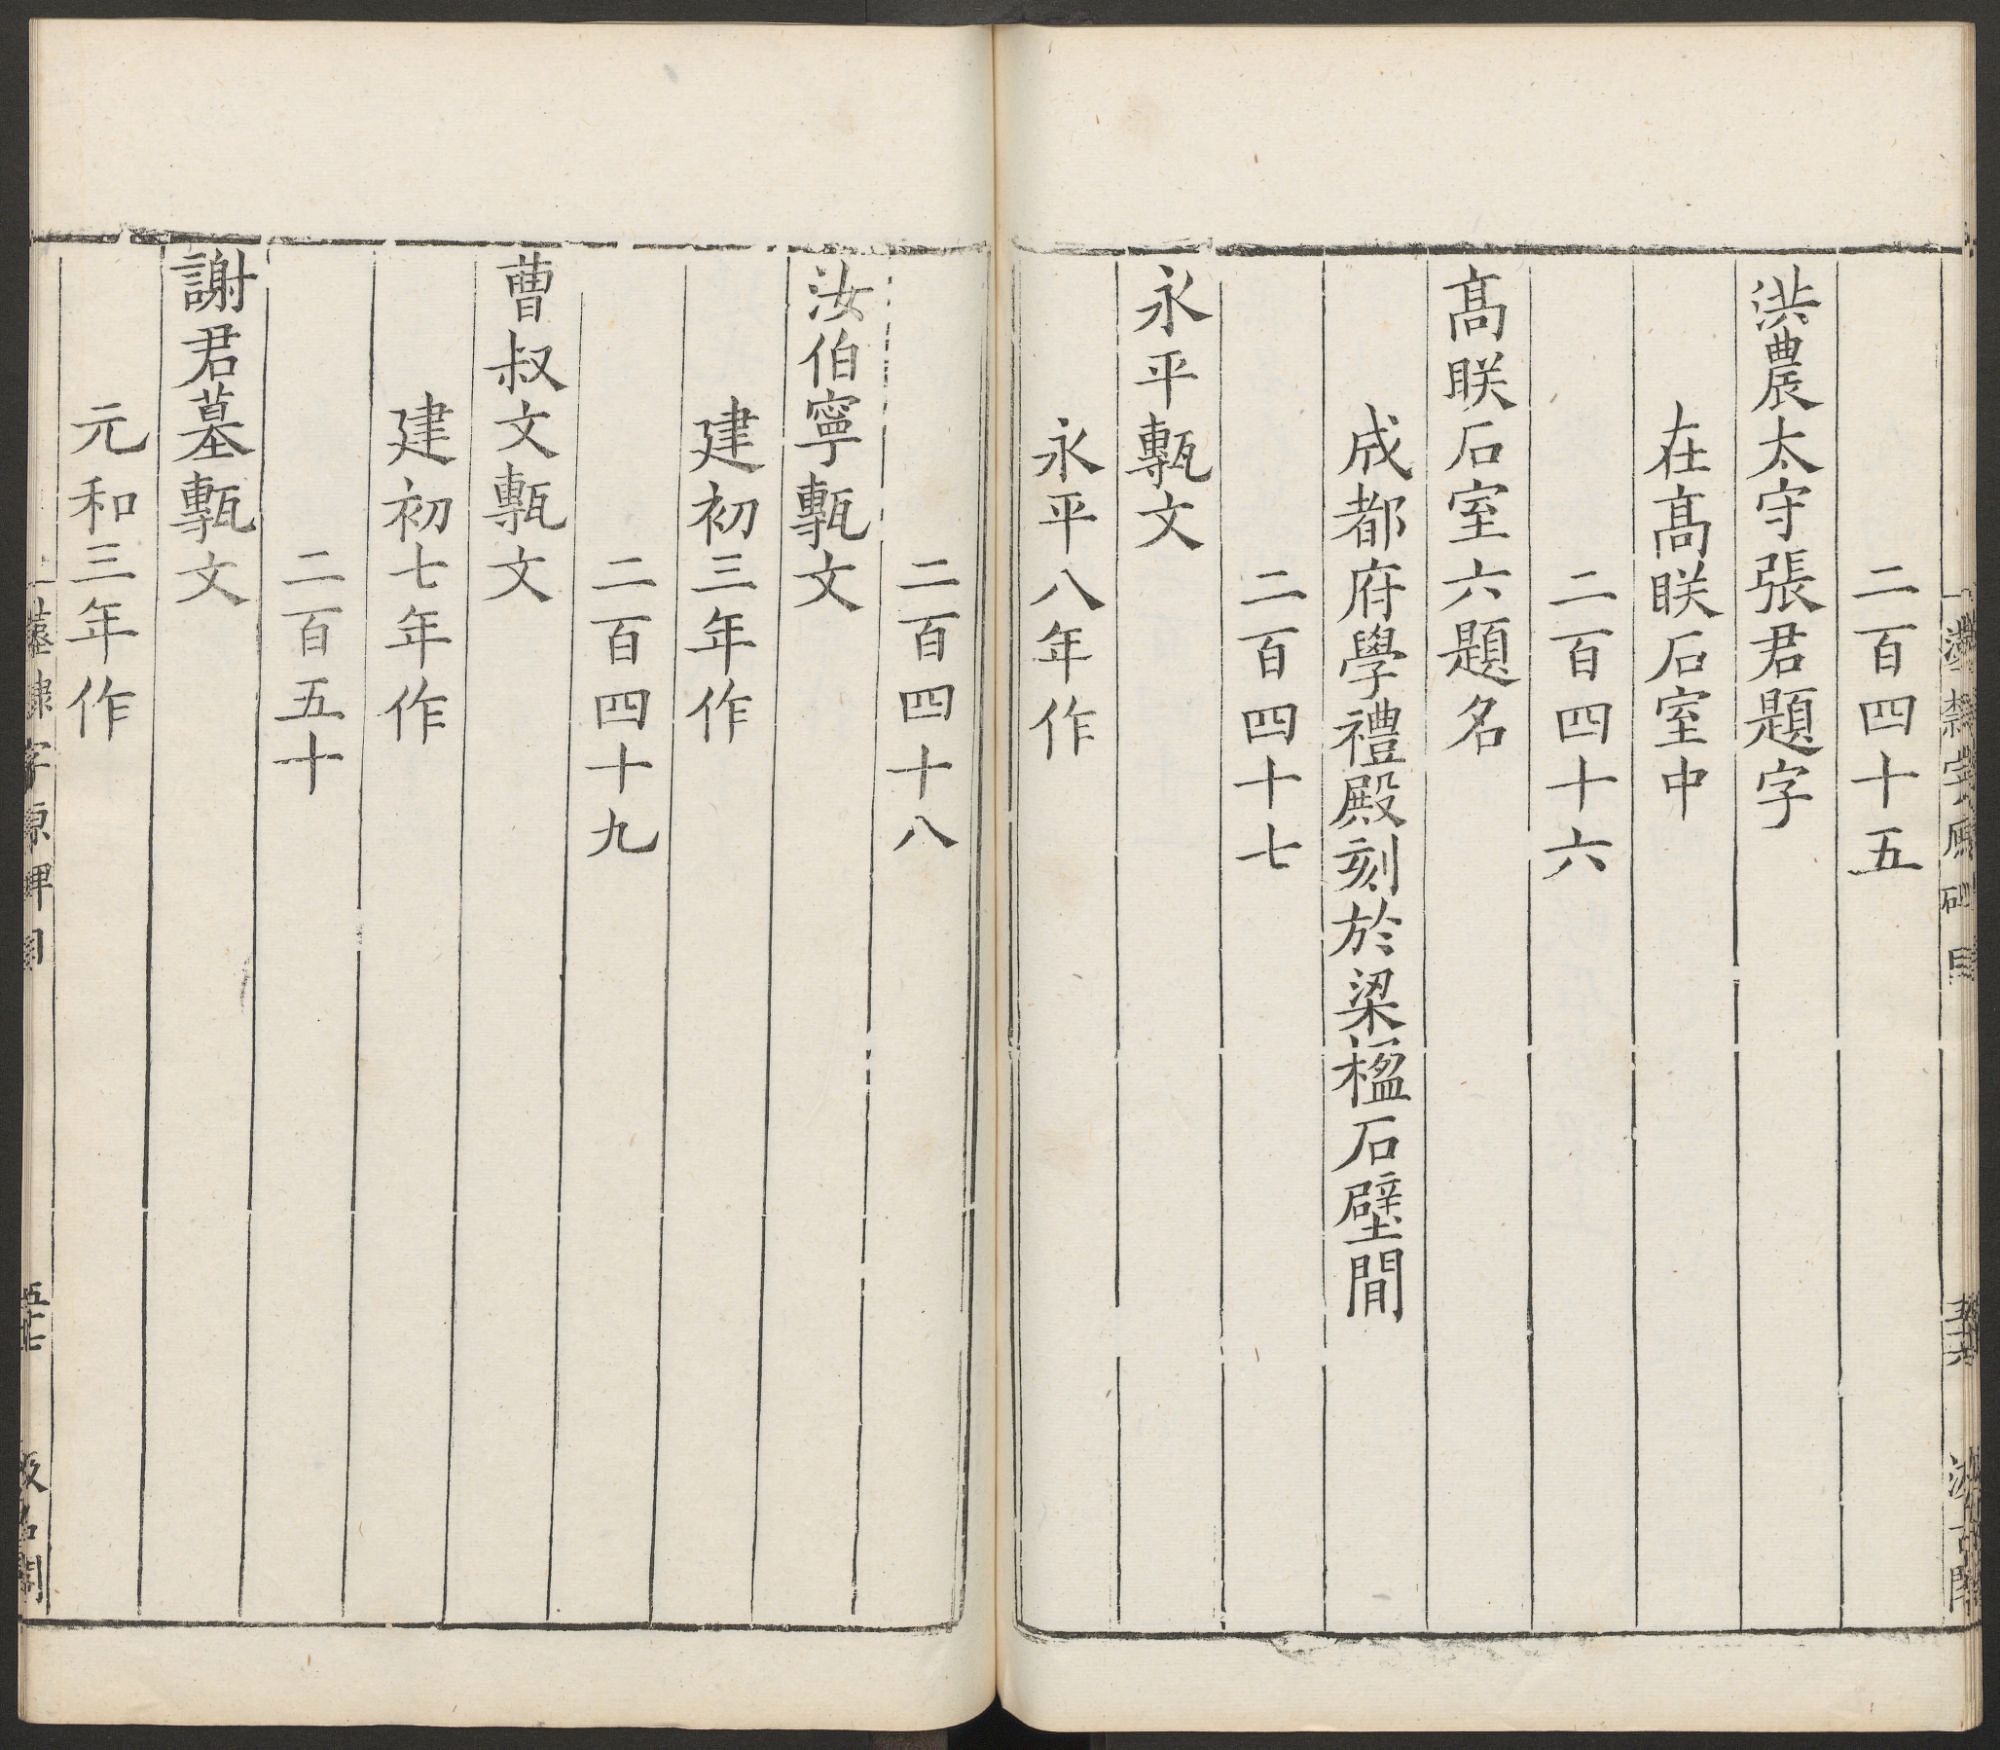 二百四十五
洪農太守張君題字
在高眹石室中
二百四十六
高眹石室六題名
成都府學禮殿刻於梁楹石壁間
二百四十七
永平甎文
永平八年作
二百四十八
汝伯寧甎文
建初三年作
二百四十九
曹叔文甎文
建初七年作
二百五十
謝君墓甎文
元和三年作